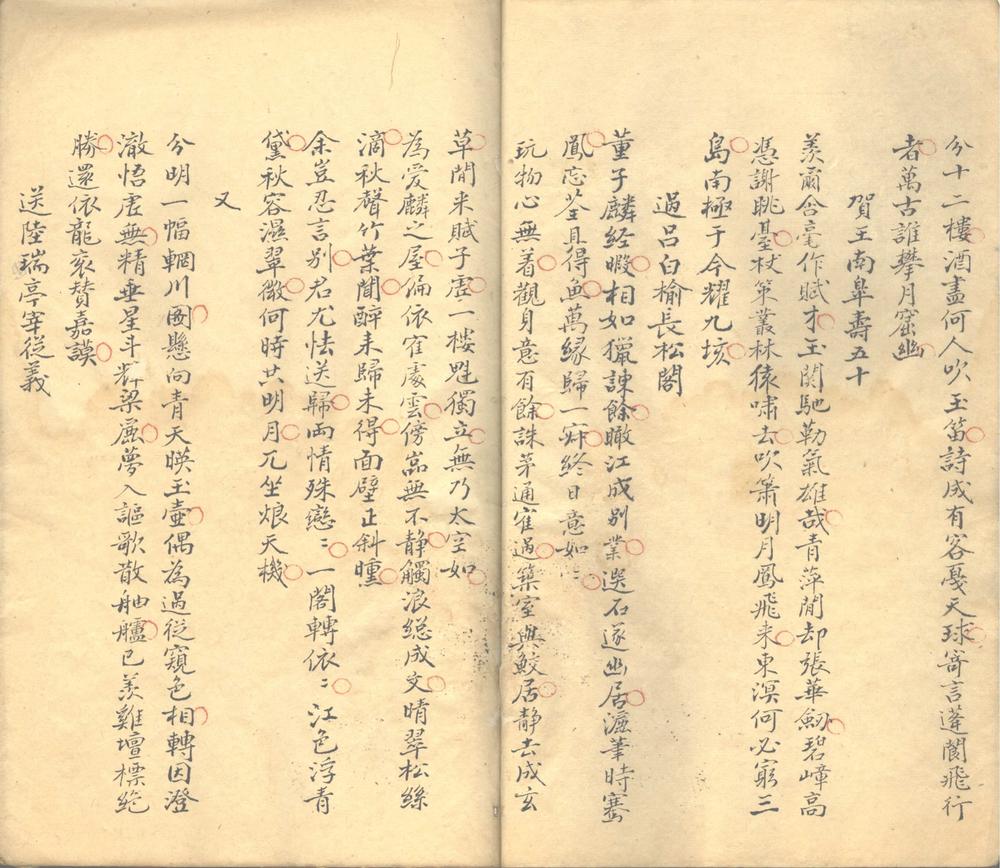 分十二樓酒盡何人吹玉笛詩成有客戛天球寄言蓬閬飛行
者萬古誰攀月窟幽
賀王南皐壽五十
羨爾含毫作賦才玉關馳勒氣雄哉青萍閒却張華劒碧嶂高
憑謝眺臺杖策叢林猿嘯去吹簫明月鳳飛來東溟何必窮三
島南極于今耀九垓
過呂白榆長松閣
董子麟經暇相如獵諫餘瞰江成別業選石遂幽居灑筆時騫
鳳忘荃且得魚萬緣歸一寂終日意如如
玩物心無着觀身意有餘誅茅通窄過築室與鮫居静去成玄
草閒來賦子虛一樓魁獨立無乃太空如
為愛麟之屋偏依窄處雲傍嵓無不静觸浪總成文晴翠松絲
滴秋聲竹葉聞醉來歸未得面壁正斜曛
余豈忍言別君尤怯送歸兩情殊戀戀一閣轉依依江色浮青
黛秋容濕翠微何時共明月兀坐烺天機
又
分明一幅輞川圖懸向青天暎玉壷偶為過從窺色相轉因澄
澈悟虛無精垂星斗輝梁風夢入謳歌散舳艫已羨雞壇標絶
勝還依龍衮贊嘉謨
送陸瑞亭宰從義